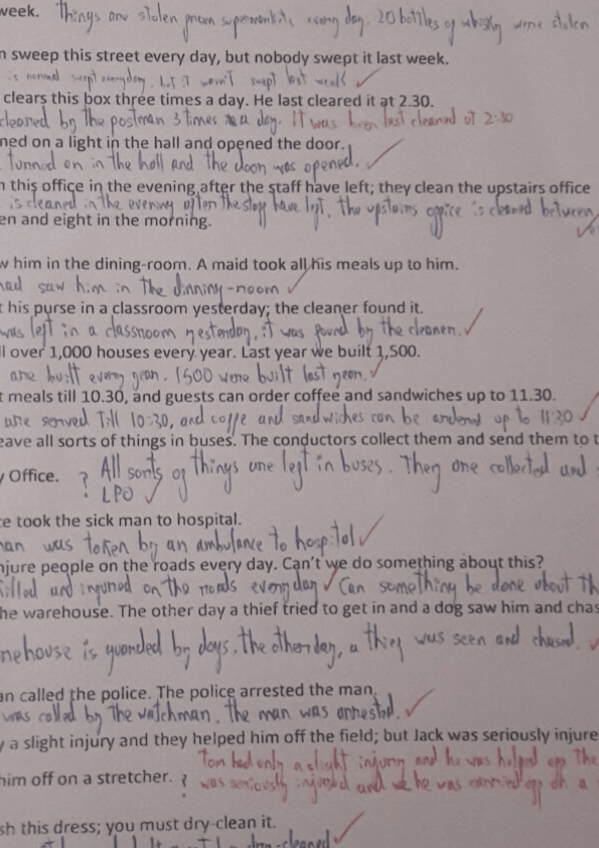 week. Things are stolen from supermarkets every day. 20 bottles of whisky were stolen
n sweep this street every day, but nobody swept it last week.
is normal swept everyday, but it wasn't swept last week
clears this box three times a day. He last cleared it at 2.30.
cleared by the postman 3 times a day. It was been last cleared at 2:30
ned on a light in the hall and opened the door.
turned on in the hall and the door was opened.
n this office in the evening after the staff have left; they clean the upstairs office
is cleaned in the evening after the staff have left, the upstairs office is cleaned between
en and eight in the morning.
w him in the dining-room. A maid took all his meals up to him.
had saw him in the dinniny-room
t his purse in a classroom yesterday; the cleaner found it.
was left in a classroom yesterday, it was found by the cleaner.
l over 1,000 houses every year. Last year we built 1,500.
are built every year. 1500 were built last year.
t meals till 10.30, and guests can order coffee and sandwiches up to 11.30.
are served Till 10:30, and coffe and sandwiches can be ordered up to 11:30
eave all sorts of things in buses. The conductors collect them and send them to t
y Office. ? All sorts of things are left in buses. They are collected and
LPO
ce took the sick man to hospital.
man was token by an ambulance to hospital
njure people on the roads every day. Can't we do something about this?
killed and injured on the roads everyday Can something be done about th
he warehouse. The other day a thief tried to get in and a dog saw him and chas
rehouse is guarded by dogs, the other day, a thief was seen and chased.
an called the police. The police arrested the man.
was called by the watchman, the man was arrested.
y a slight injury and they helped him off the field; but Jack was seriously injure
Tom had only a slight injury and he was helped off the
him off on a stretcher. ? was seriously injured and he was carried off on a
sh this dress; you must dry-clean it.
dry-cleaned